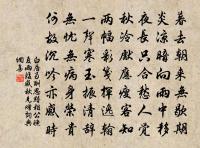 暮去朝來無歇期
炎涼暗向雨中移
夜長只合愁人覺
秋冷先應瘦客知
兩幅彩箋揮逸翰
一聲寒玉振清辭
無憂無病身榮貴
何故沉吟亦感時
白居易酬思黯相公晚
夏雨後感秋見贈詞典
網集